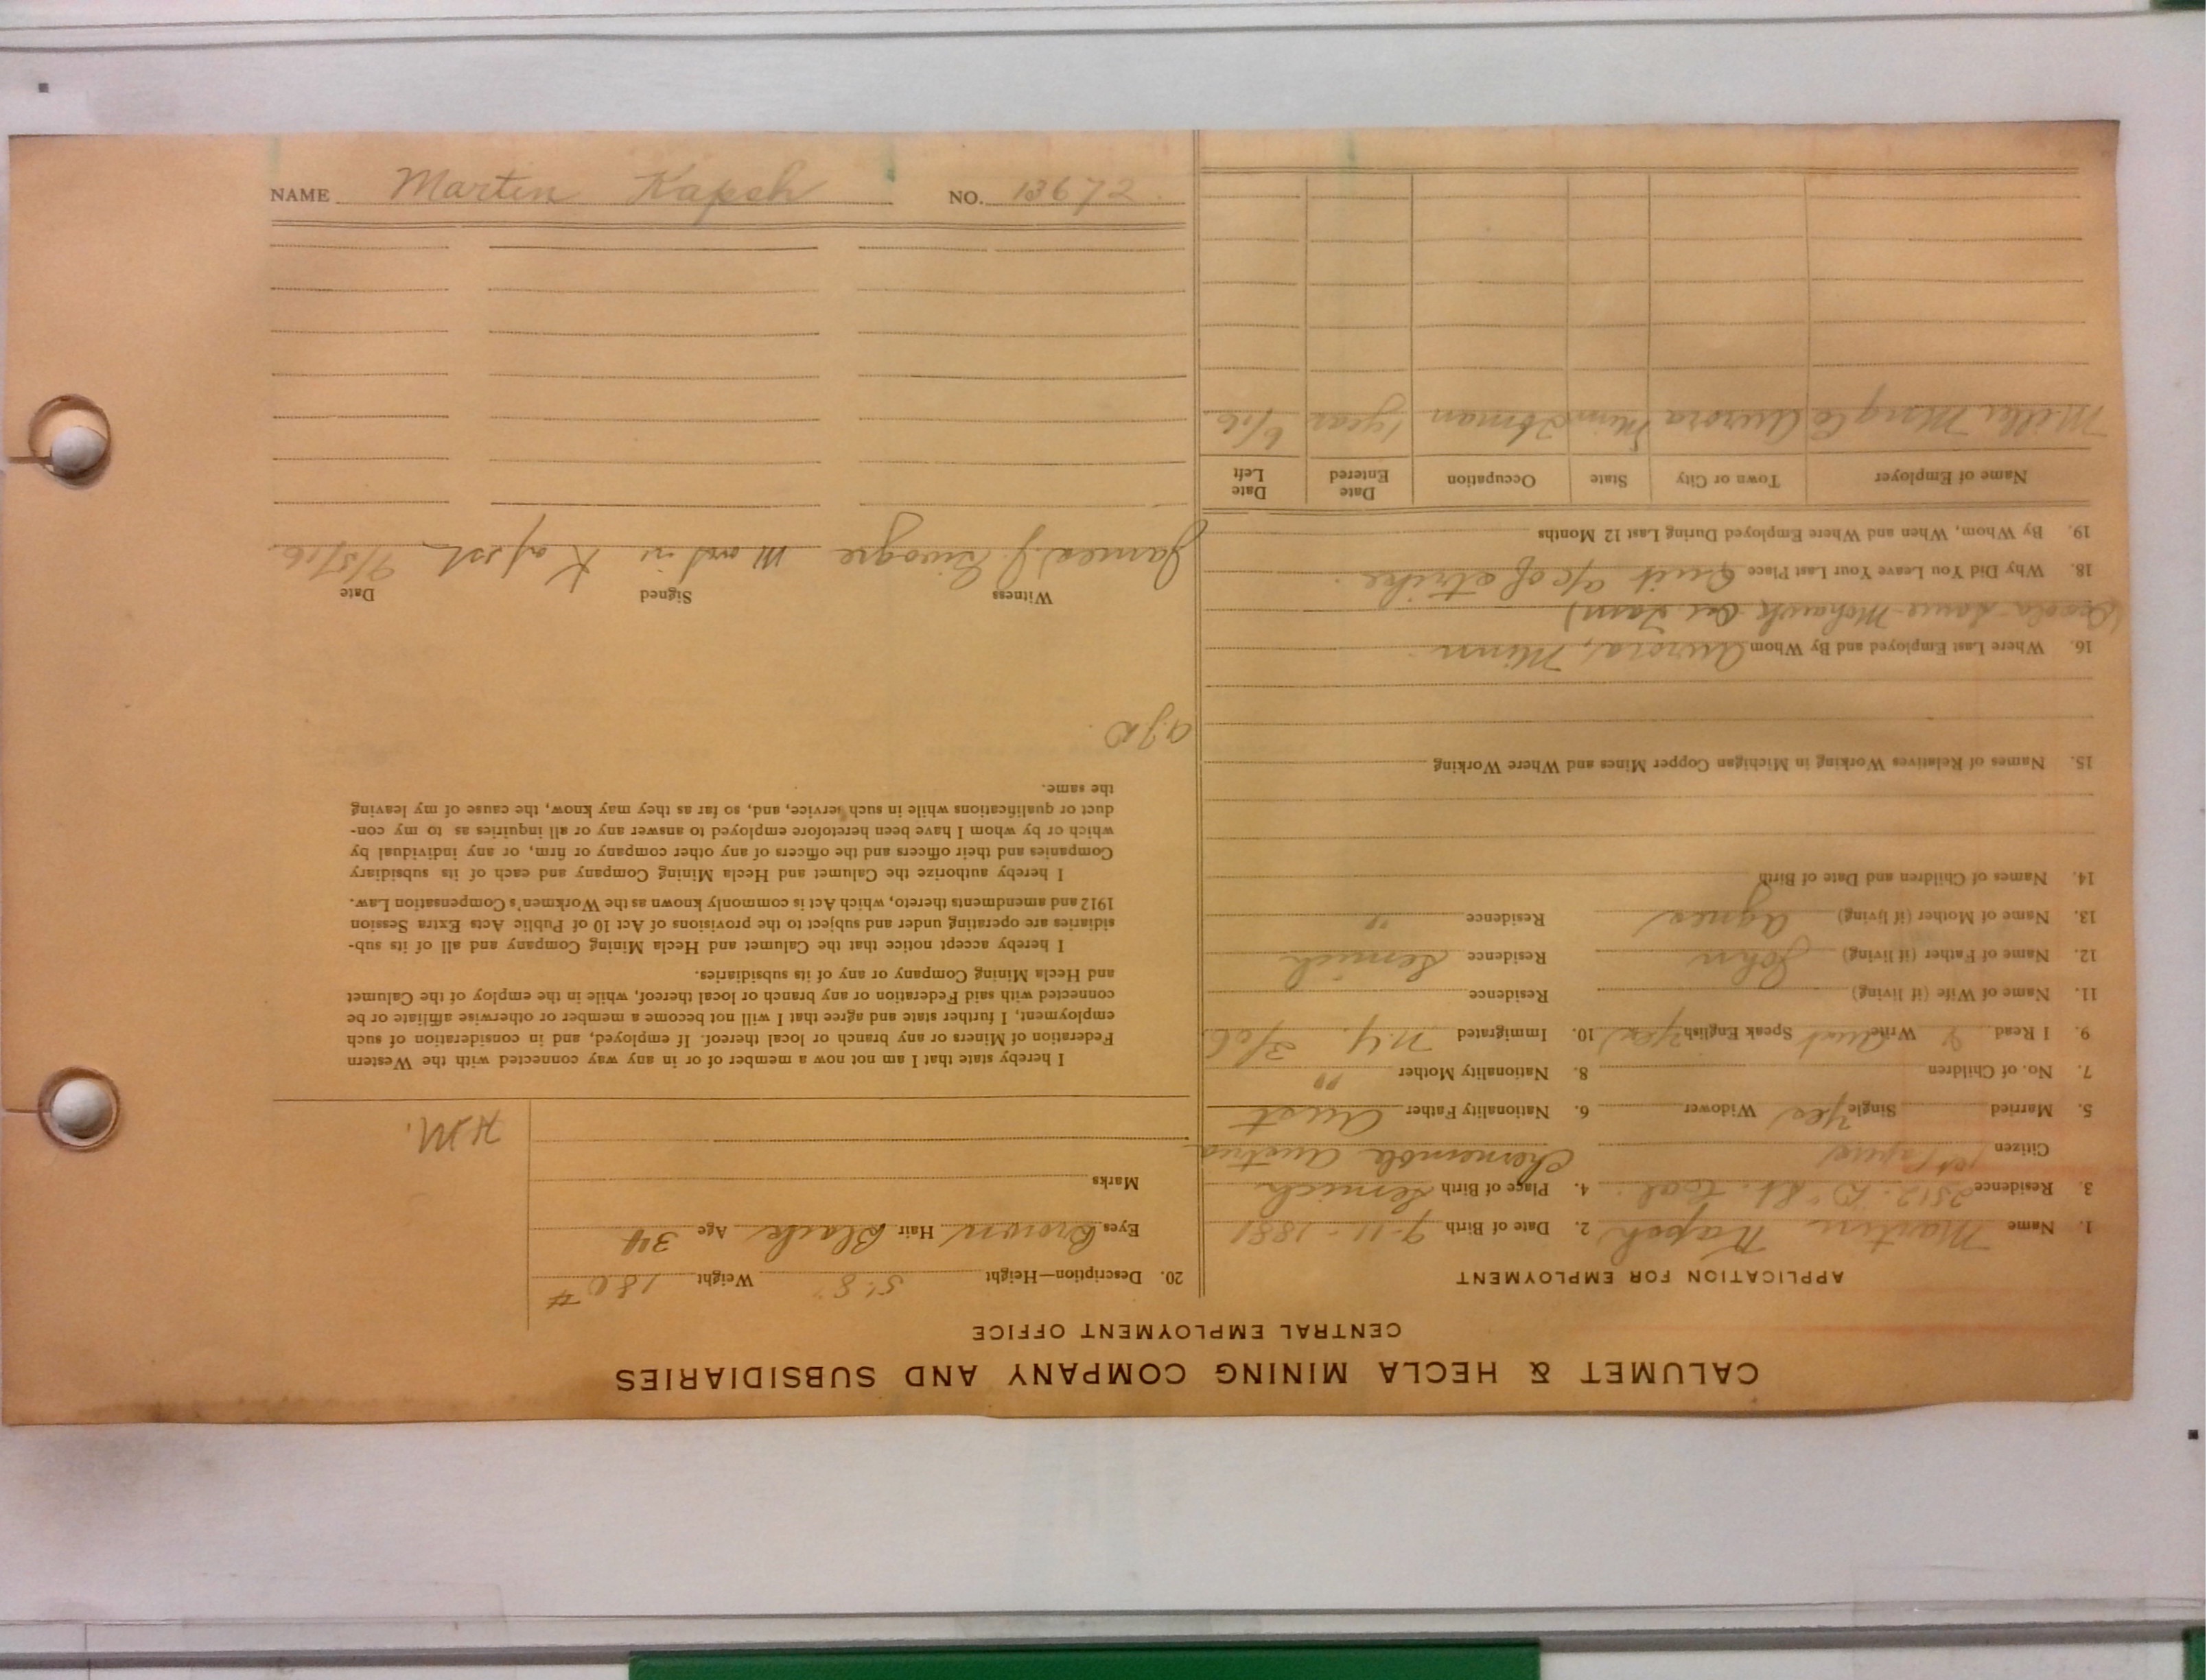 NAME Martin Kapsh NO. 13672
CALUMET & HECLA MINING COMPANY AND SUBSIDIARIES
CENTRAL EMPLOYMENT OFFICE
APPLICATION FOR EMPLOYMENT
1. Name Martin Kapsh 2. Date of Birth 9-11-1881
3. Residence 2512 B St. 4. Place of Birth Semich
Citizen 1st Papers Chernembl Austria
5. Married Single Yes Widower 6. Nationality Father Aust
7. No. of Children 8. Nationality Mother "
9. I Read & Write Aust Speak English Yes 10. Immigrated N.Y. 3/06
11. Name of Wife (if living) Residence
12. Name of Father (if living) John Residence Semich
13. Name of Mother (if living) Agnes Residence "
14. Names of Children and Date of Birth
15. Names of Relatives Working in Michigan Copper Mines and Where Working
16. Where Last Employed and By Whom Aurora, Minn
Osceola Mohawk
18. Why Did You Leave Your Last Place Quit a/c of strike
19. By Whom, When and Where Employed During Last 12 Months
Name of Employer Town or City State Occupation Date Entered Date Left
Miller Aurora Minn 1 year 6/16
20. Description—Height 5'8" Weight 180 #
Eyes Brown Hair Black Age 34
Marks
H.M.
I hereby state that I am not now a member of or in any way connected with the Western
Federation of Miners or any branch or local thereof. If employed, and in consideration of such
employment, I further state and agree that I will not become a member or otherwise affiliate or be
connected with said Federation or any branch or local thereof, while in the employ of the Calumet
and Hecla Mining Company or any of its subsidiaries.
I hereby accept notice that the Calumet and Hecla Mining Company and all of its sub-
sidiaries are operating under and subject to the provisions of Act 10 of Public Acts Extra Session
1912 and amendments thereto, which Act is commonly known as the Workmen's Compensation Law.
I hereby authorize the Calumet and Hecla Mining Company and each of its subsidiary
Companies and their officers and the officers of any other company or firm, or any individual by
which or by whom I have been heretofore employed to answer any or all inquiries as to my con-
duct or qualifications while in such service, and, so far as they may know, the cause of my leaving
the same.
Witness Signed Date
James J. Martin Kapsh 9/5/16